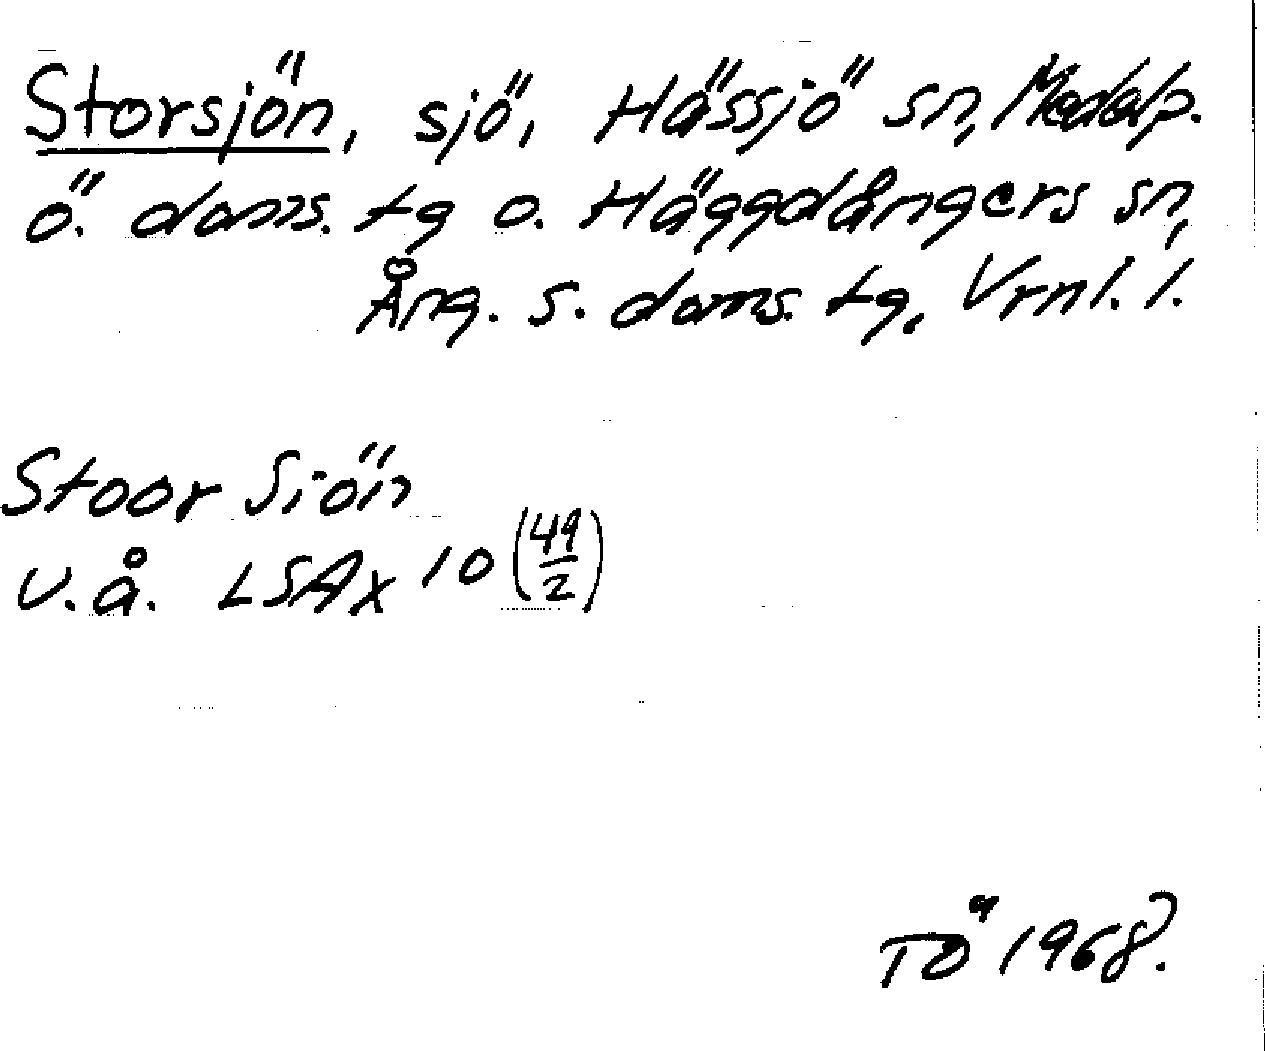 Storsjön, sjö, Hässjö sn, Medelp.
ö. doms. tg o. Häggdångers sn,
Ång. s. doms. tg, Vrnl. l.
Stoor Siön
u.å. LSA x 10 (49/2)
TÖ 1968.